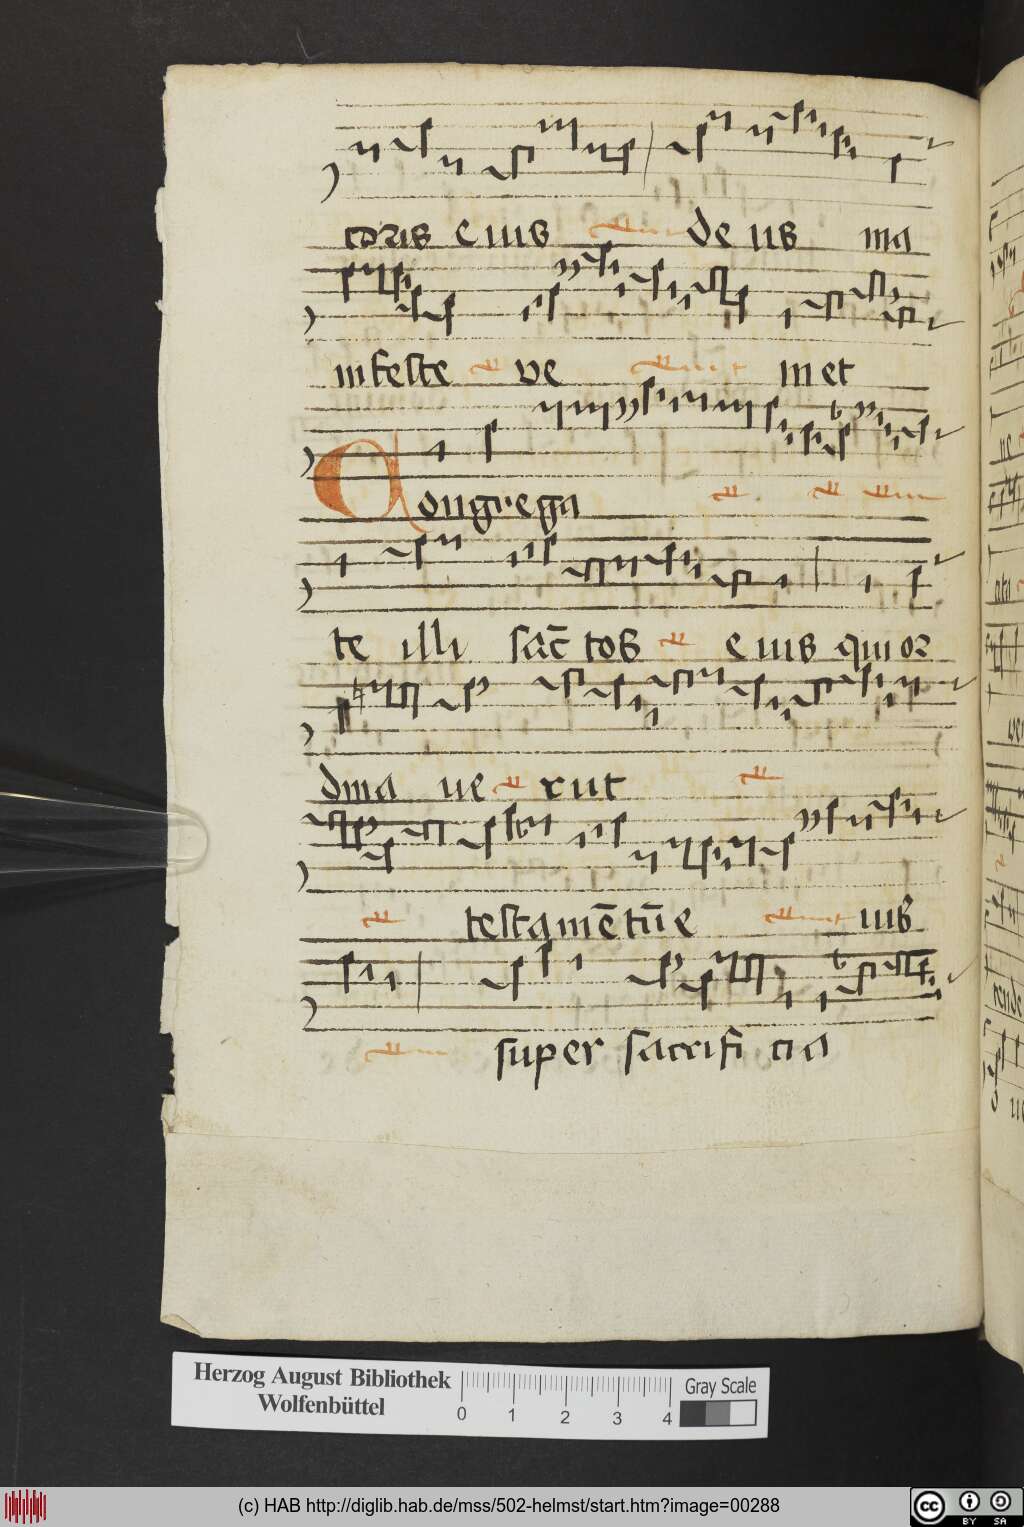 eius deus ma
nifeste ve niet
Congrega
te illi sāctos eius qui or
dina ue rūt
testamētū e ius
super sacrifi cia
Herzog August Bibliothek
Wolfenbüttel
0 1 2 3 4
Gray Scale
(c) HAB http://diglib.hab.de/mss/502-helmst/start.htm?image=00288
cc BY SA